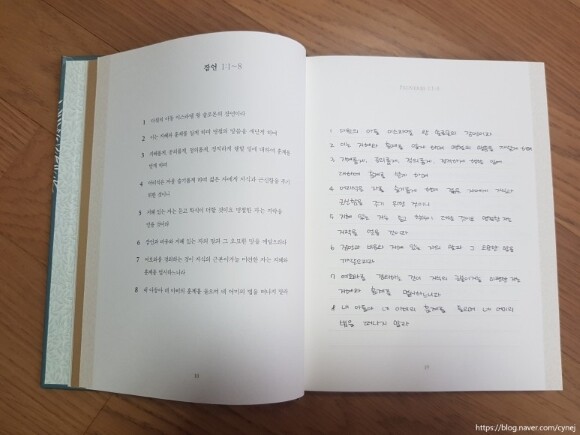 잠언 1:1~8
1 다윗의 아들 이스라엘 왕 솔로몬의 잠언이라
2 이는 지혜와 훈계를 알게 하며 명철의 말씀을 깨닫게 하며
3 지혜롭게, 공의롭게, 정의롭게, 정직하게 행할 일에 대하여 훈계를
받게 하며
4 어리석은 자를 슬기롭게 하며 젊은 자에게 지식과 근신함을 주기
위한 것이니
5 지혜 있는 자는 듣고 학식이 더할 것이요 명철한 자는 지략을
얻을 것이라
6 잠언과 비유와 지혜 있는 자의 말과 그 오묘한 말을 깨달으리라
7 여호와를 경외하는 것이 지식의 근본이거늘 미련한 자는 지혜와
훈계를 멸시하느니라
8 내 아들아 네 아비의 훈계를 들으며 네 어미의 법을 떠나지 말라
1 다윗의 아들 이스라엘 왕 솔로몬의 잠언이라
2 이는 지혜와 훈계를 알게 하며 명철의 말씀을 깨닫게 하며
3 지혜롭게, 공의롭게, 정의롭게, 정직하게 행할 일에
대하여 훈계를 받게 하며
4 어리석은 자를 슬기롭게 하며 젊은 자에게 지식과
근신함을 주기 위한 것이니
5 지혜 있는 자는 듣고 학식이 더할 것이요 명철한 자는
지략을 얻을 것이라
6 잠언과 비유와 지혜 있는 자의 말과 그 오묘한 말을
깨달으리라
7 여호와를 경외하는 것이 지식의 근본이거늘 미련한 자는
지혜와 훈계를 멸시하느니라
8 내 아들아 네 아비의 훈계를 들으며 네 어미의
법을 떠나지 말라
https://blog.naver.com/cynej